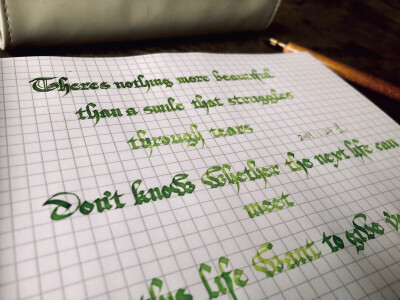 Theres nothing more beautiful
than a smile that struggles
through tears
Don't know Whether the next life can
meet
this life Want to